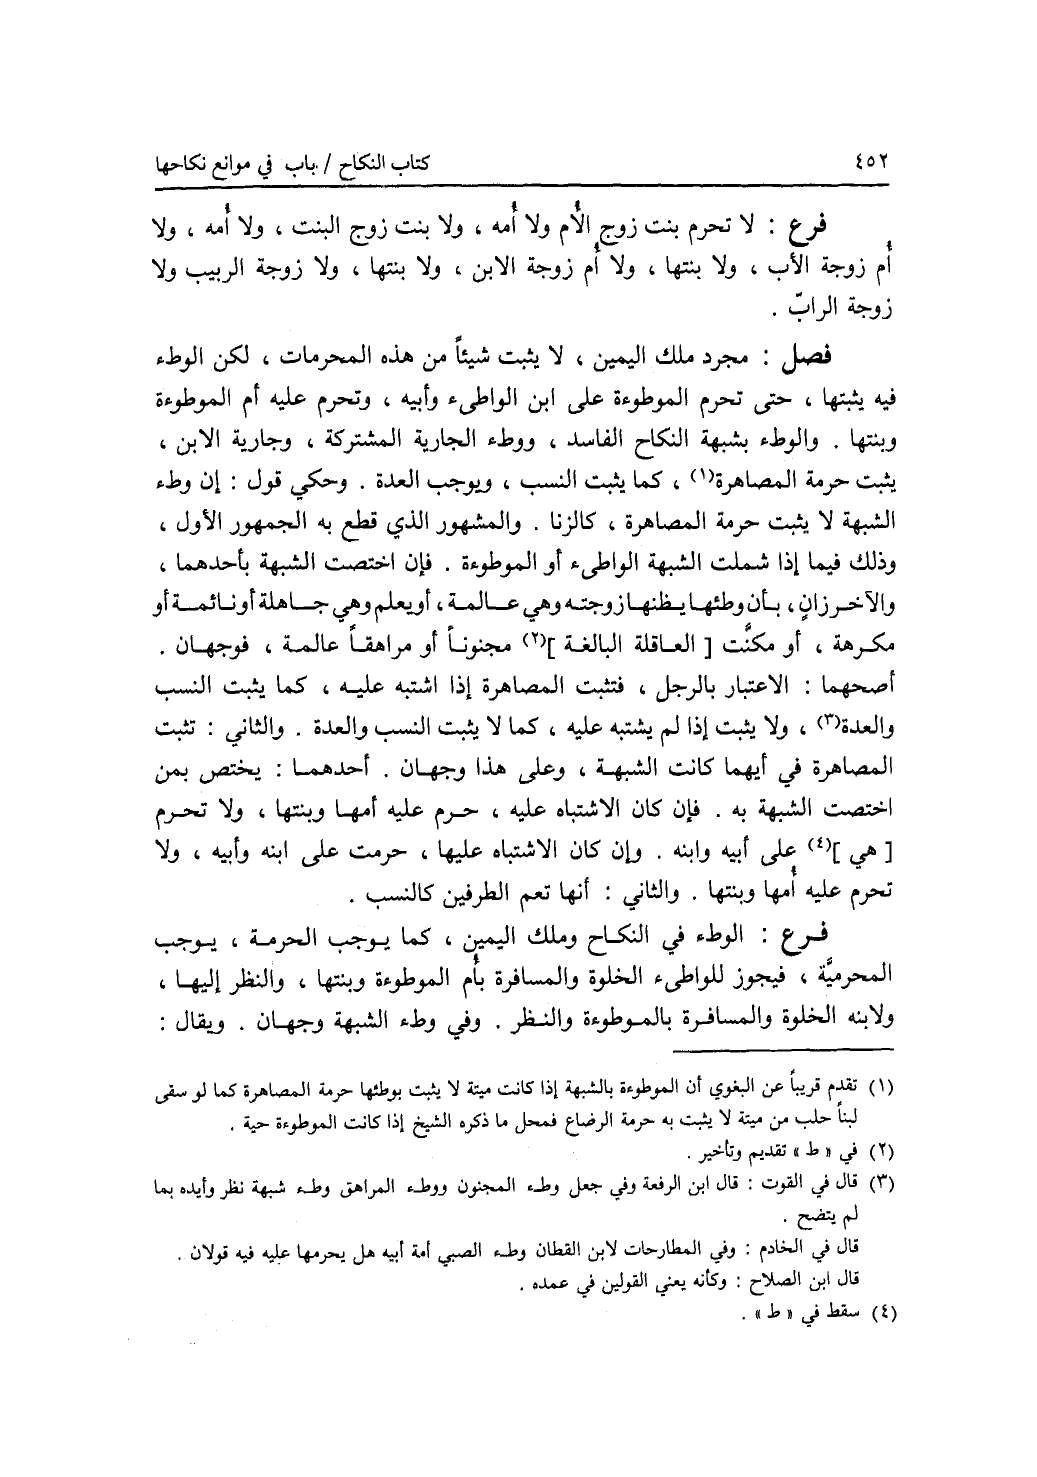 ٤٥٢ كتاب النكاح / باب في موانع نكاحها
فرع : لا تحرم بنت زوج الأُم ولا أُمه ، ولا بنت زوج البنت ، ولا أُمه ، ولا
أُم زوجة الأب ، ولا بنتها ، ولا أُم زوجة الابن ، ولا بنتها ، ولا زوجة الربيب ولا
زوجة الرابّ .
فصل : مجرد ملك اليمين ، لا يثبت شيئاً من هذه المحرمات ، لكن الوطء
فيه يثبتها ، حتى تحرم الموطوءة على ابن الواطىء وأبيه ، وتحرم عليه أم الموطوءة
وبنتها . والوطء بشبهة النكاح الفاسد ، ووطء الجارية المشتركة ، وجارية الابن ،
يثبت حرمة المصاهرة(١) ، كما يثبت النسب ، ويوجب العدة . وحكي قول : إن وطء
الشبهة لا يثبت حرمة المصاهرة ، كالزنا . والمشهور الذي قطع به الجمهور الأول ،
وذلك فيما إذا شملت الشبهة الواطىء أو الموطوءة . فإن اختصت الشبهة بأحدهما ،
والآخر زانٍ ، بأن وطئها يظنها زوجته وهي عالمة ، أو يعلم وهي جاهلة أو نائمة أو
مكرهة ، أو مكنَّت [ العاقلة البالغة ](٢) مجنوناً أو مراهقاً عالمة ، فوجهان .
أصحهما : الاعتبار بالرجل ، فتثبت المصاهرة إذا اشتبه عليه ، كما يثبت النسب
والعدة(٣) ، ولا يثبت إذا لم يشتبه عليه ، كما لا يثبت النسب والعدة . والثاني : تثبت
المصاهرة في أيهما كانت الشبهة ، وعلى هذا وجهان . أحدهما : يختص بمن
اختصت الشبهة به . فإن كان الاشتباه عليه ، حرم عليه أمها وبنتها ، ولا تحرم
[ هي ](٤) على أبيه وابنه . وإن كان الاشتباه عليها ، حرمت على ابنه وأبيه ، ولا
تحرم عليه أُمها وبنتها . والثاني : أنها تعم الطرفين كالنسب .
فرع : الوطء في النكاح وملك اليمين ، كما يوجب الحرمة ، يوجب
المحرميَّة ، فيجوز للواطىء الخلوة والمسافرة بأُم الموطوءة وبنتها ، والنظر إليها ،
ولابنه الخلوة والمسافرة بالموطوءة والنظر . وفي وطء الشبهة وجهان . ويقال :
(١) تقدم قريباً عن البغوي أن الموطوءة بالشبهة إذا كانت ميتة لا يثبت بوطئها حرمة المصاهرة كما لو سقى
لبناً حلب من ميتة لا يثبت به حرمة الرضاع فمحل ما ذكره الشيخ إذا كانت الموطوءة حية .
(٢) في « ط » تقديم وتأخير .
(٣) قال في القوت : قال ابن الرفعة وفي جعل وطء المجنون ووطء المراهق وطء شبهة نظر وأيده بما
لم يتضح .
قال في الخادم : وفي المطارحات لابن القطان وطء الصبي أمة أبيه هل يحرمها عليه فيه قولان .
قال ابن الصلاح : وكأنه يعني القولين في عمده .
(٤) سقط في « ط » .